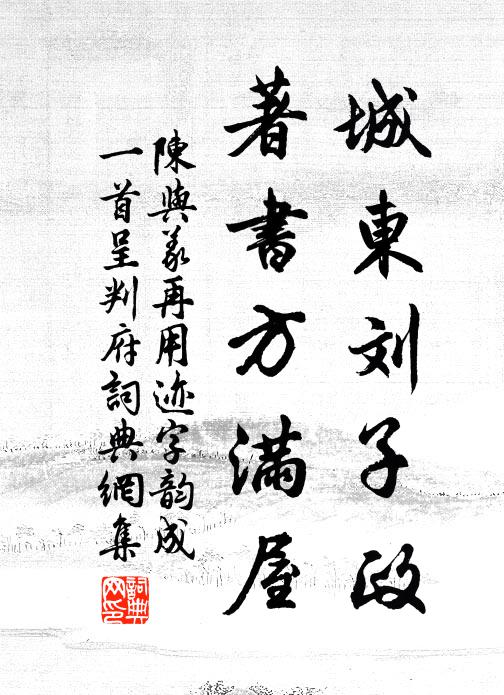 城東刘子政
著書方滿屋
陳與义再用迹字韵成
一首呈判府詞典網集
詞典网印